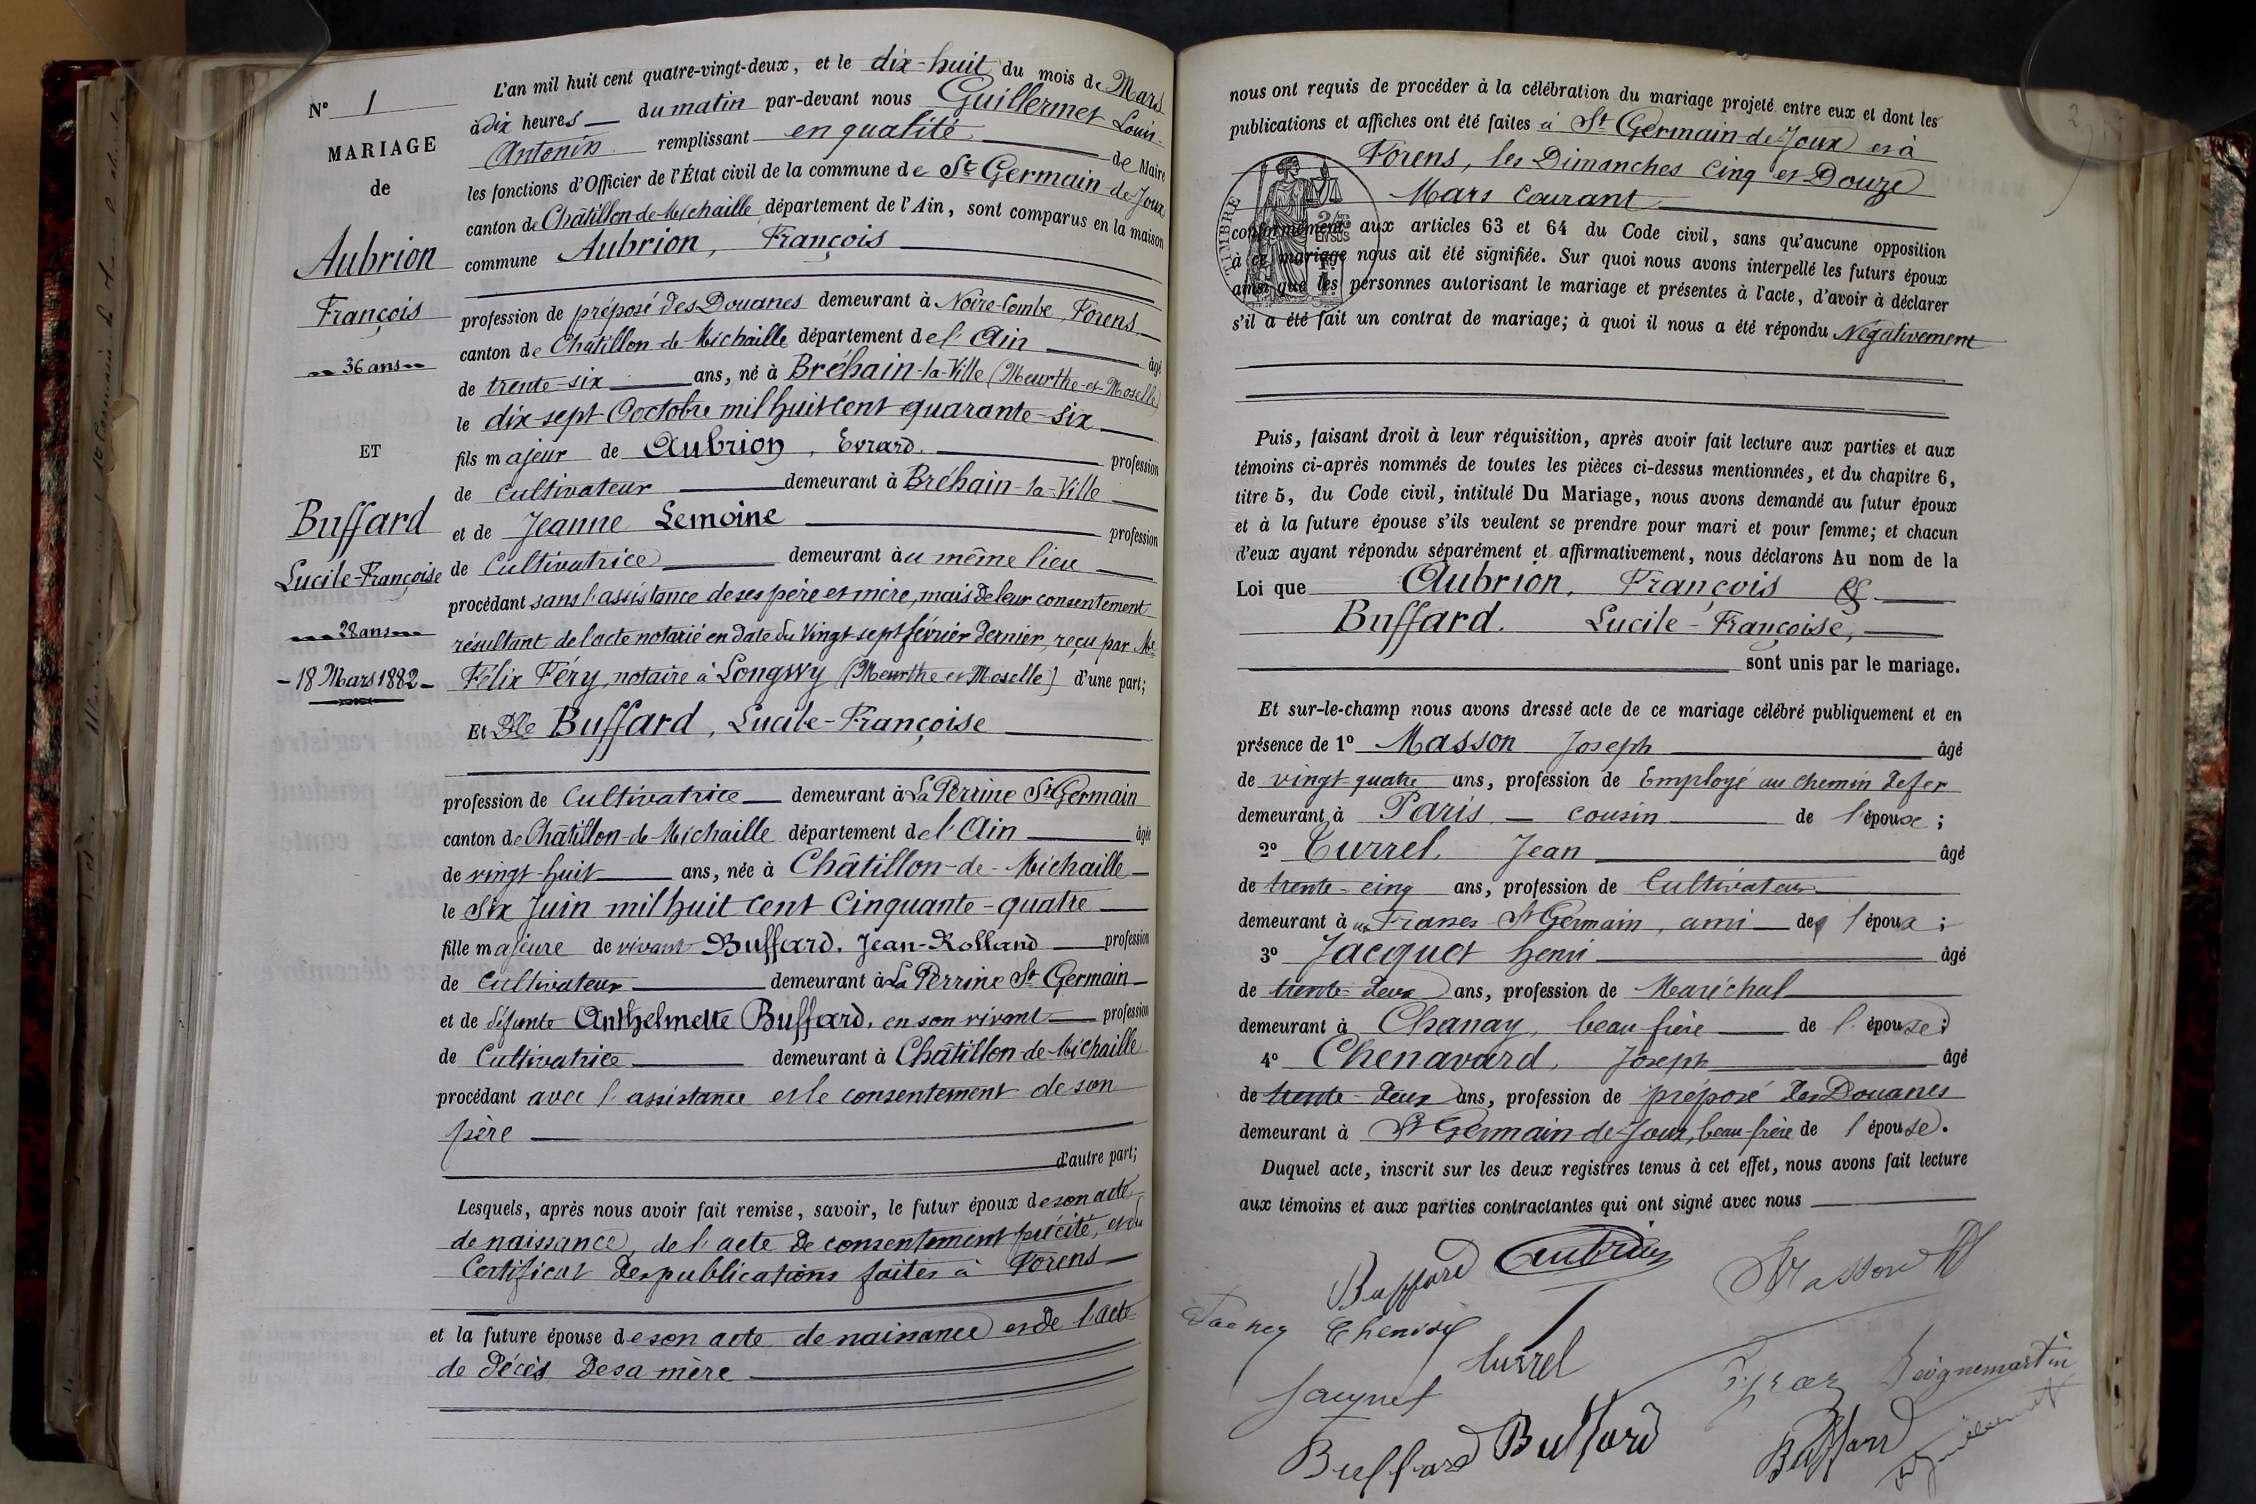 N° 1
MARIAGE
de
Aubrion
François
36 ans
ET
Buffard
Lucile-Françoise
28 ans
18 Mars 1882
L'an mil huit cent quatre-vingt-deux, et le dix-huit du mois de Mars
à dix heures du matin par-devant nous Guillermet Louis-
Antonin remplissant en qualité de Maire
les fonctions d'Officier de l'État civil de la commune de St Germain-de-Joux
canton de Châtillon-de-Michaille département de l'Ain, sont comparus en la maison
commune Aubrion, François
profession de préposé des Douanes demeurant à Noire-Combe, Forens
canton de Châtillon-de-Michaille département de l'Ain âgé
de trente-six ans, né à Bréhain-la-Ville (Meurthe-et-Moselle)
le dix-sept Octobre mil huit cent quarante-six
fils majeur de Aubrion, Evrard profession
de Cultivateur demeurant à Bréhain-la-Ville
et de Jeanne Lemoine profession
de Cultivatrice demeurant au même lieu
procédant sans l'assistance de ses père et mère, mais de leur consentement
résultant de l'acte notarié en date du Vingt sept février dernier, reçu par Me
Félix Féry, notaire à Longwy (Meurthe et Moselle) d'une part;
Et Dlle Buffard, Lucile-Françoise
profession de Cultivatrice demeurant à La Perrine St Germain
canton de Châtillon-de-Michaille département de l'Ain âgée
de vingt-huit ans, née à Châtillon-de-Michaille
le Six Juin mil huit cent Cinquante-quatre
fille majeure de vivant Buffard, Jean-Rolland profession
de Cultivateur demeurant à La Perrine St Germain
et de défunte Anthelmette Buffard, en son vivant profession
de Cultivatrice demeurant à Châtillon-de-Michaille
procédant avec l'assistance et le consentement de son
père
d'autre part;
Lesquels, après nous avoir fait remise, savoir, le futur époux de son acte
de naissance, de l'acte de consentement précité, et du
Certificat des publications faites à Forens
et la future épouse de son acte de naissance et de l'acte
de décès de sa mère
nous ont requis de procéder à la célébration du mariage projeté entre eux et dont les
publications et affiches ont été faites à St Germain-de-Joux et à
Forens, les Dimanches Cinq et Douze
Mars Courant
TIMBRE
2/10 EN SUS
conformément aux articles 63 et 64 du Code civil, sans qu'aucune opposition
à ce mariage nous ait été signifiée. Sur quoi nous avons interpellé les futurs époux
ainsi que les personnes autorisant le mariage et présentes à l'acte, d'avoir à déclarer
s'il a été fait un contrat de mariage; à quoi il nous a été répondu Négativement
Puis, faisant droit à leur réquisition, après avoir fait lecture aux parties et aux
témoins ci-après nommés de toutes les pièces ci-dessus mentionnées, et du chapitre 6,
titre 5, du Code civil, intitulé Du Mariage, nous avons demandé au futur époux
et à la future épouse s'ils veulent se prendre pour mari et pour femme; et chacun
d'eux ayant répondu séparément et affirmativement, nous déclarons Au nom de la
Loi que Aubrion, François &
Buffard, Lucile-Françoise,
sont unis par le mariage.
Et sur-le-champ nous avons dressé acte de ce mariage célébré publiquement et en
présence de 1° Masson Joseph âgé
de vingt quatre ans, profession de Employé au chemin de fer
demeurant à Paris cousin de l'épouse;
2° Turrel, Jean âgé
de trente-cinq ans, profession de Cultivateur
demeurant à St Germain, ami de l'époux;
3° Jacquet henri âgé
de trente-deux ans, profession de Maréchal
demeurant à Chanay, beau frère de l'épouse;
4° Chenavard, Joseph âgé
de trente-deux ans, profession de préposé des Douanes
demeurant à St Germain-de-Joux, beau-frère de l'épouse.
Duquel acte, inscrit sur les deux registres tenus à cet effet, nous avons fait lecture
aux témoins et aux parties contractantes qui ont signé avec nous
Buffard Aubrion Masson
turrel
Jaquet
Buffard Buffard Buffard